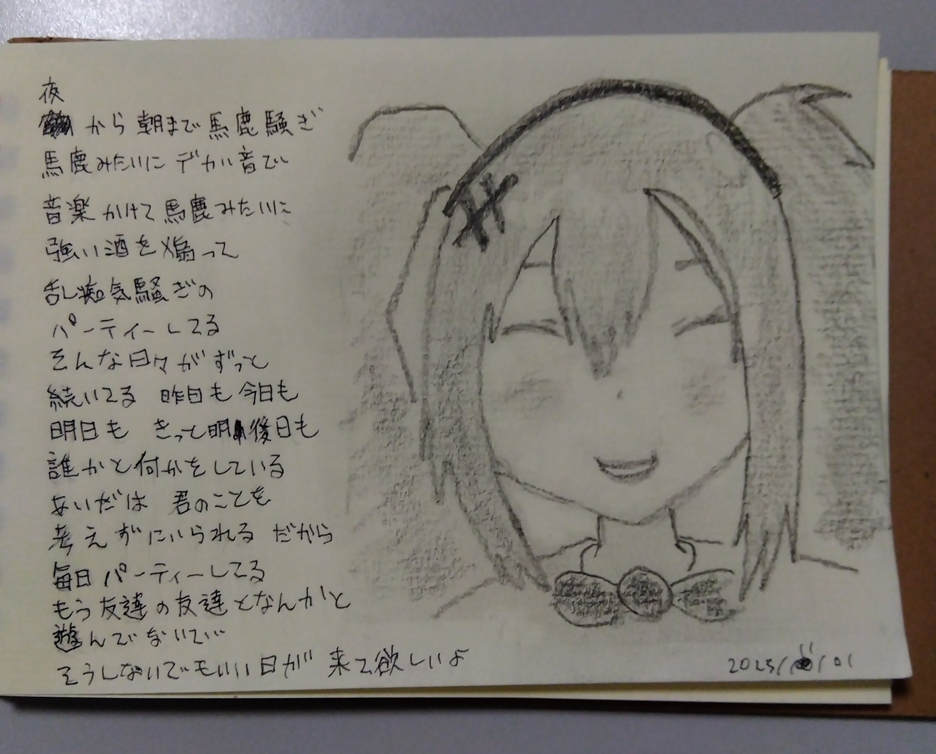 夜
から朝まで馬鹿騒ぎ
馬鹿みたいにデカい音で
音楽かけて馬鹿みたいに
強い酒を煽って
乱痴気騒ぎの
パーティーしてる
そんな日々がずっと
続いてる 昨日も今日も
明日も きっと明後日も
誰かと何かをしている
あいだは 君のことを
考えずにいられる だから
毎日パーティーしてる
もう友達の友達となんかと
遊んでないで
そうしないでもいい日が 来て欲しいよ